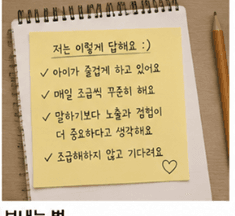 저는 이렇게 답해요 :)
✓ 아이가 즐겁게 하고 있어요
✓ 매일 조금씩 꾸준히 해요
✓ 말하기보다 노출과 경험이
더 중요하다고 생각해요
✓ 조급해하지 않고 기다려요